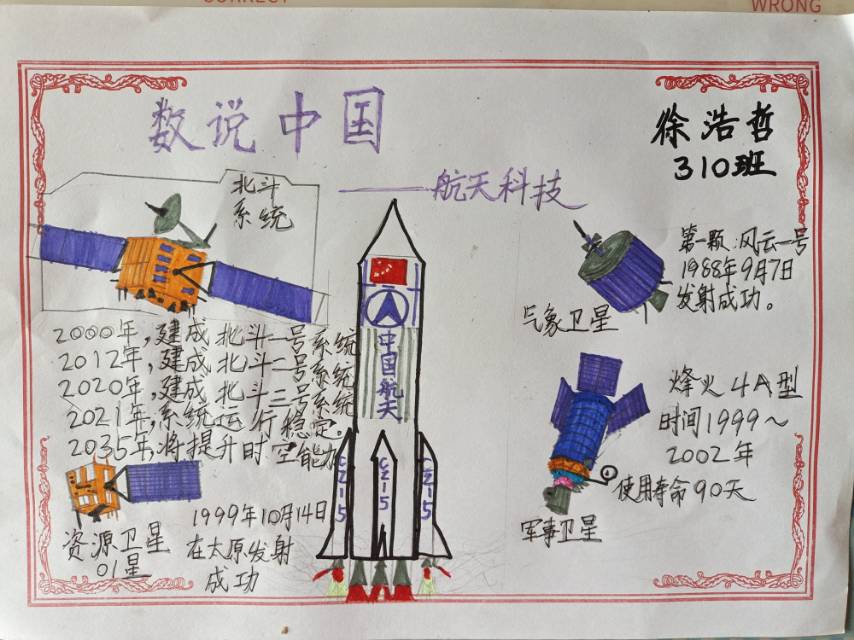 CORRECT
WRONG
数说中国
——航天科技
徐浩哲
310班
北斗
系统
2000年,建成北斗一号系统
2012年,建成北斗二号系统
2020年,建成北斗三号系统
2021年,系统运行稳定。
2035年,将提升时空能力
资源卫星
01星
1999年10月14日
在太原发射
成功
中国航天
CZ-5
CZ-5
CZ-5
气象卫星
第一颗:风云一号
1988年9月7日
发射成功。
烽火4A型
时间1999~
2002年
使用寿命90天
军事卫星